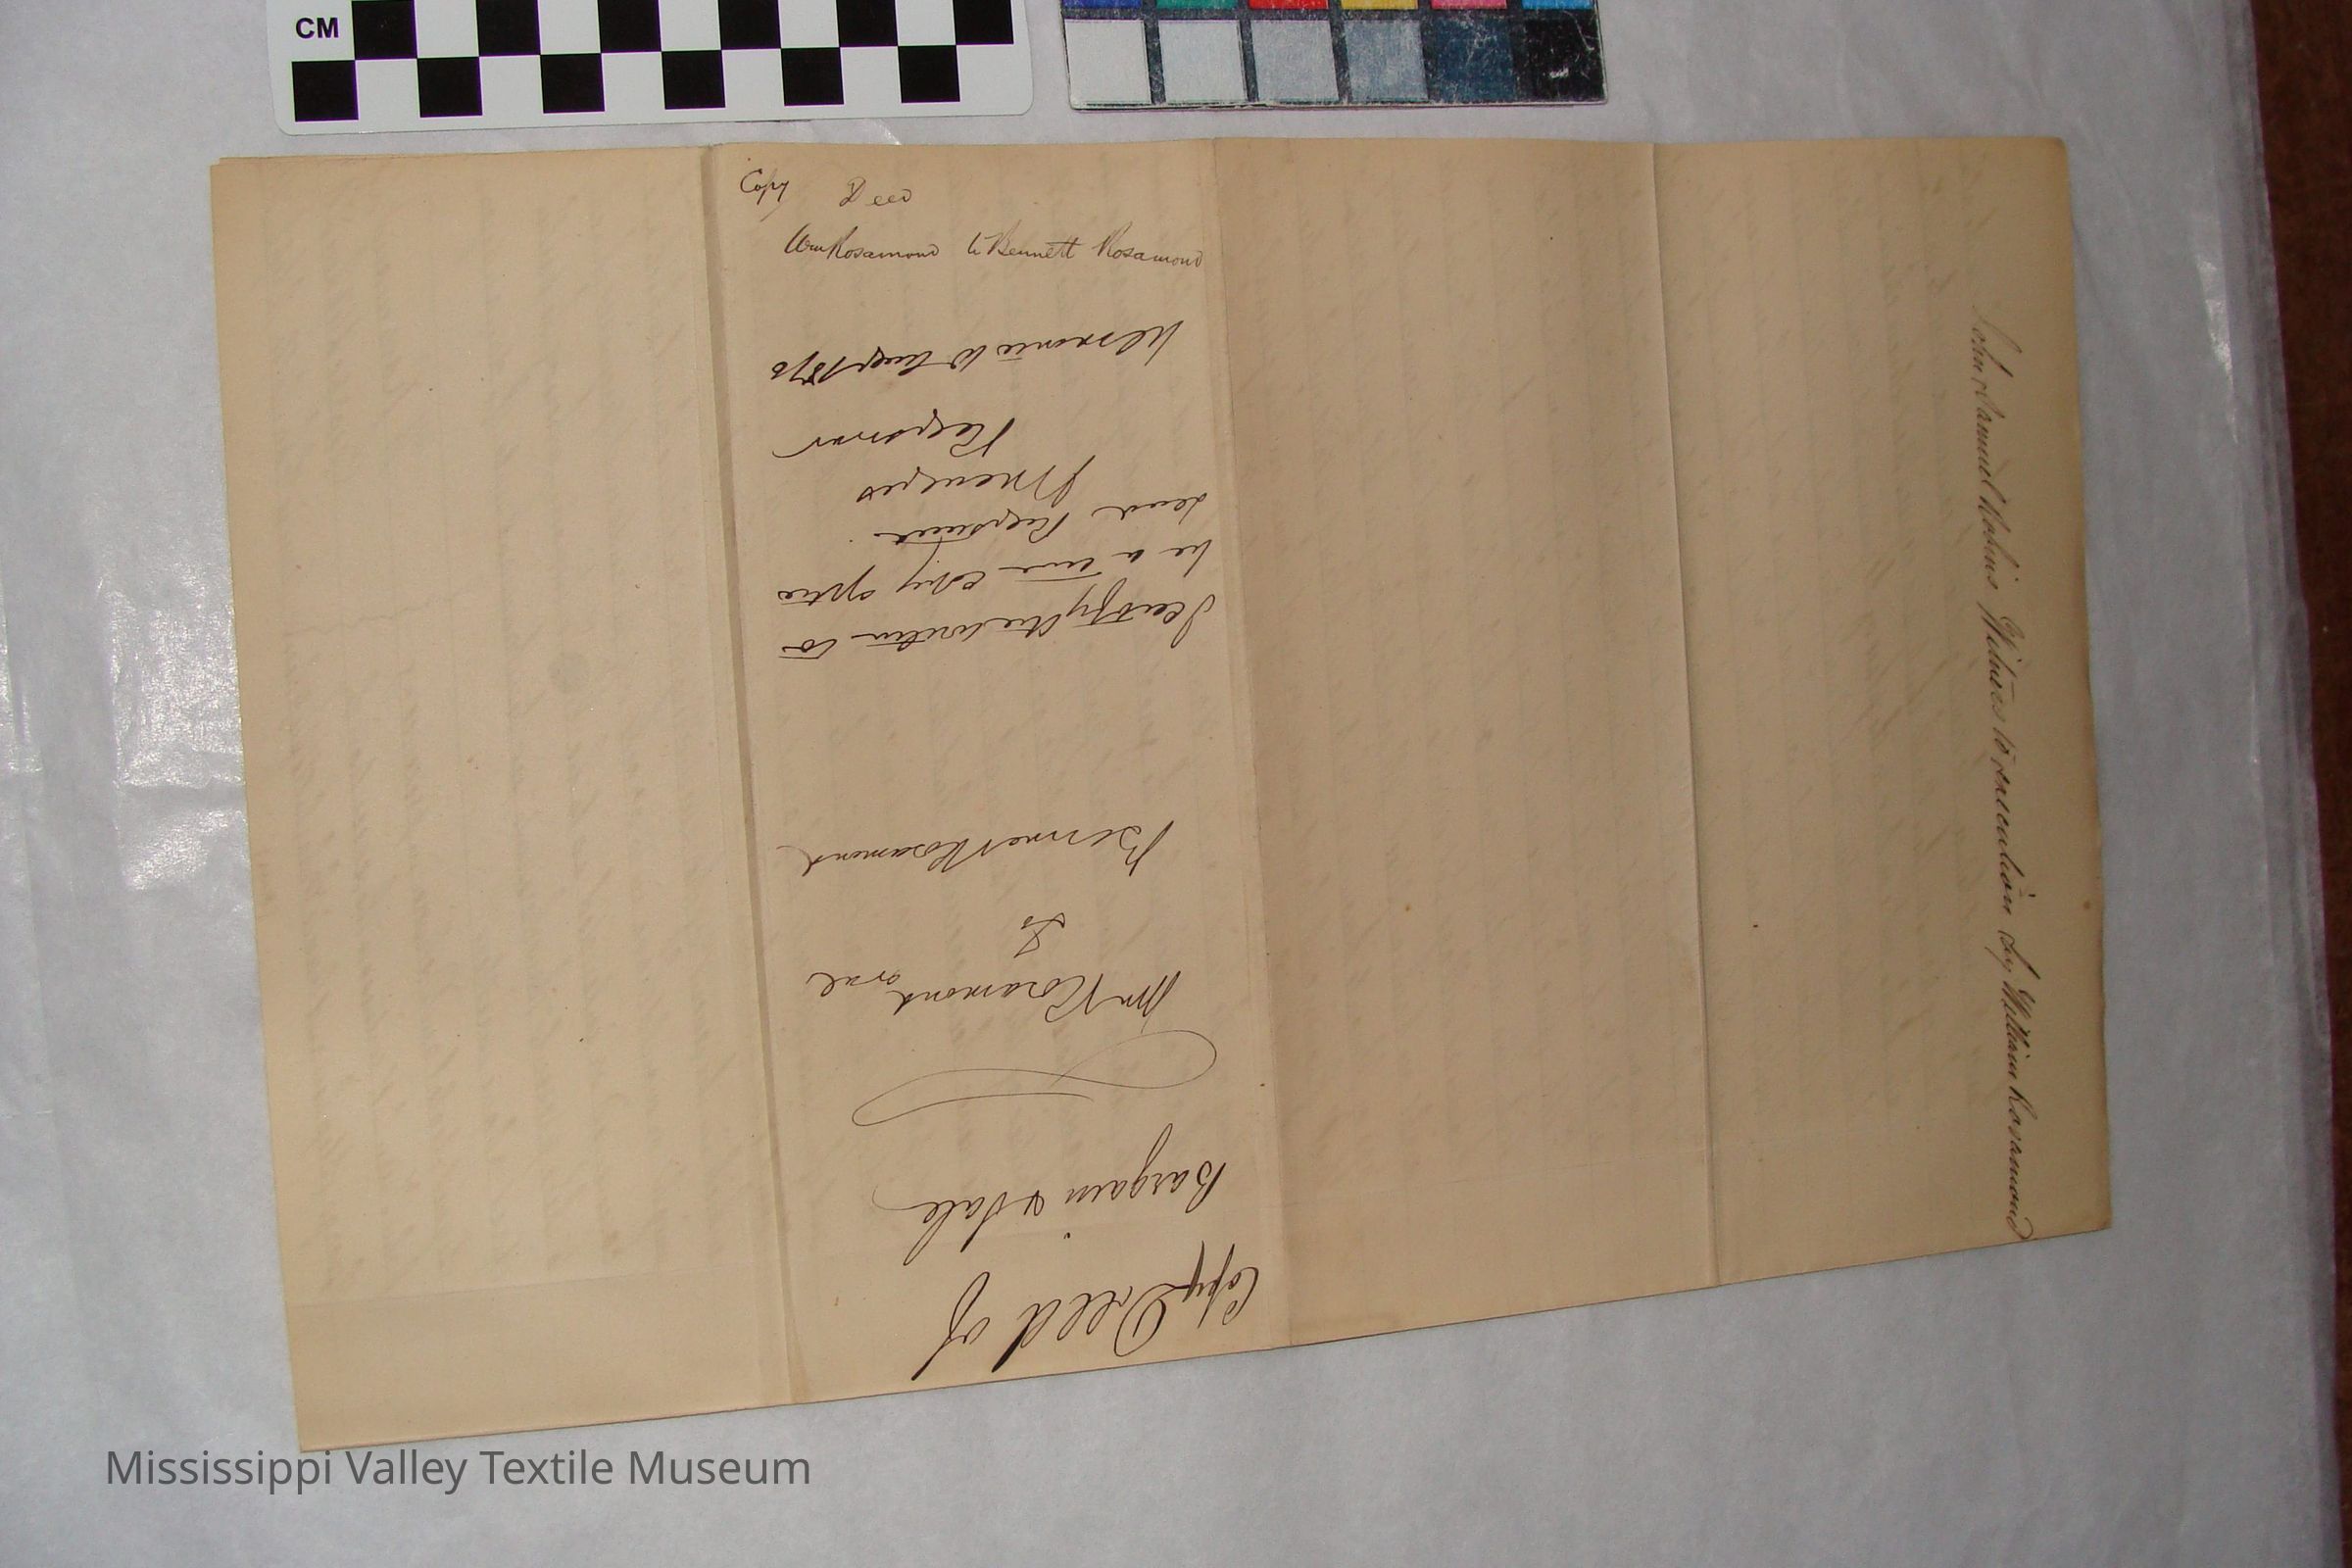 CM
Copy Deed
Wm Rosamond to Bennett Rosamond
Copy Deed of
Bargain & Sale
Wm Rosamond
To
Bennet Rosamond
I certify the within to
be a true copy of the
Registrar
Aug 1870
Witness to execution by William Rosamond
Mississippi Valley Textile Museum